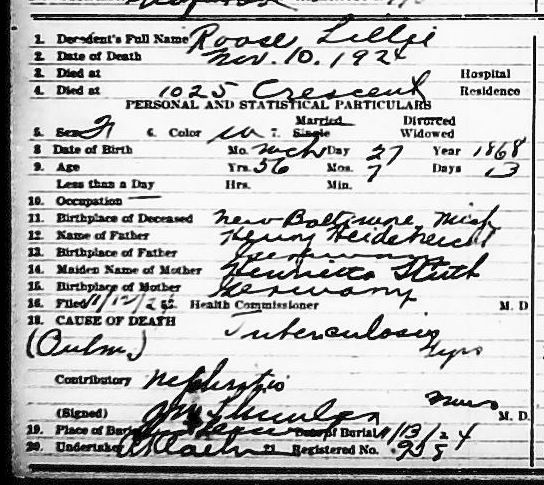 1. Decedent's Full Name Roose Lillie
2. Date of Death Nov. 10. 1924
3. Died at Hospital
4. Died at 1025 Crescent Residence
PERSONAL AND STATISTICAL PARTICULARS
5. Sex F 6. Color W 7. Married Single Divorced Widowed
8 Date of Birth Mo. Mch Day 27 Year 1868
9. Age Yrs. 56 Mos. 7 Days 13
Less than a Day Hrs. Min.
10. Occupation —
11. Birthplace of Deceased New Baltimore Mich
12. Name of Father Henry Heidenreich
13. Birthplace of Father Germany
14. Maiden Name of Mother Henrietta
15. Birthplace of Mother Germany
16. Filed 11/12/24 Health Commissioner M. D
18. CAUSE OF DEATH Tuberculosis
(Pulm.) 7 yrs
Contributory Nephritis
(Signed) M. D.
19. Place of Burial Date of Burial 11/13/24
20. Undertaker 21 Registered No.